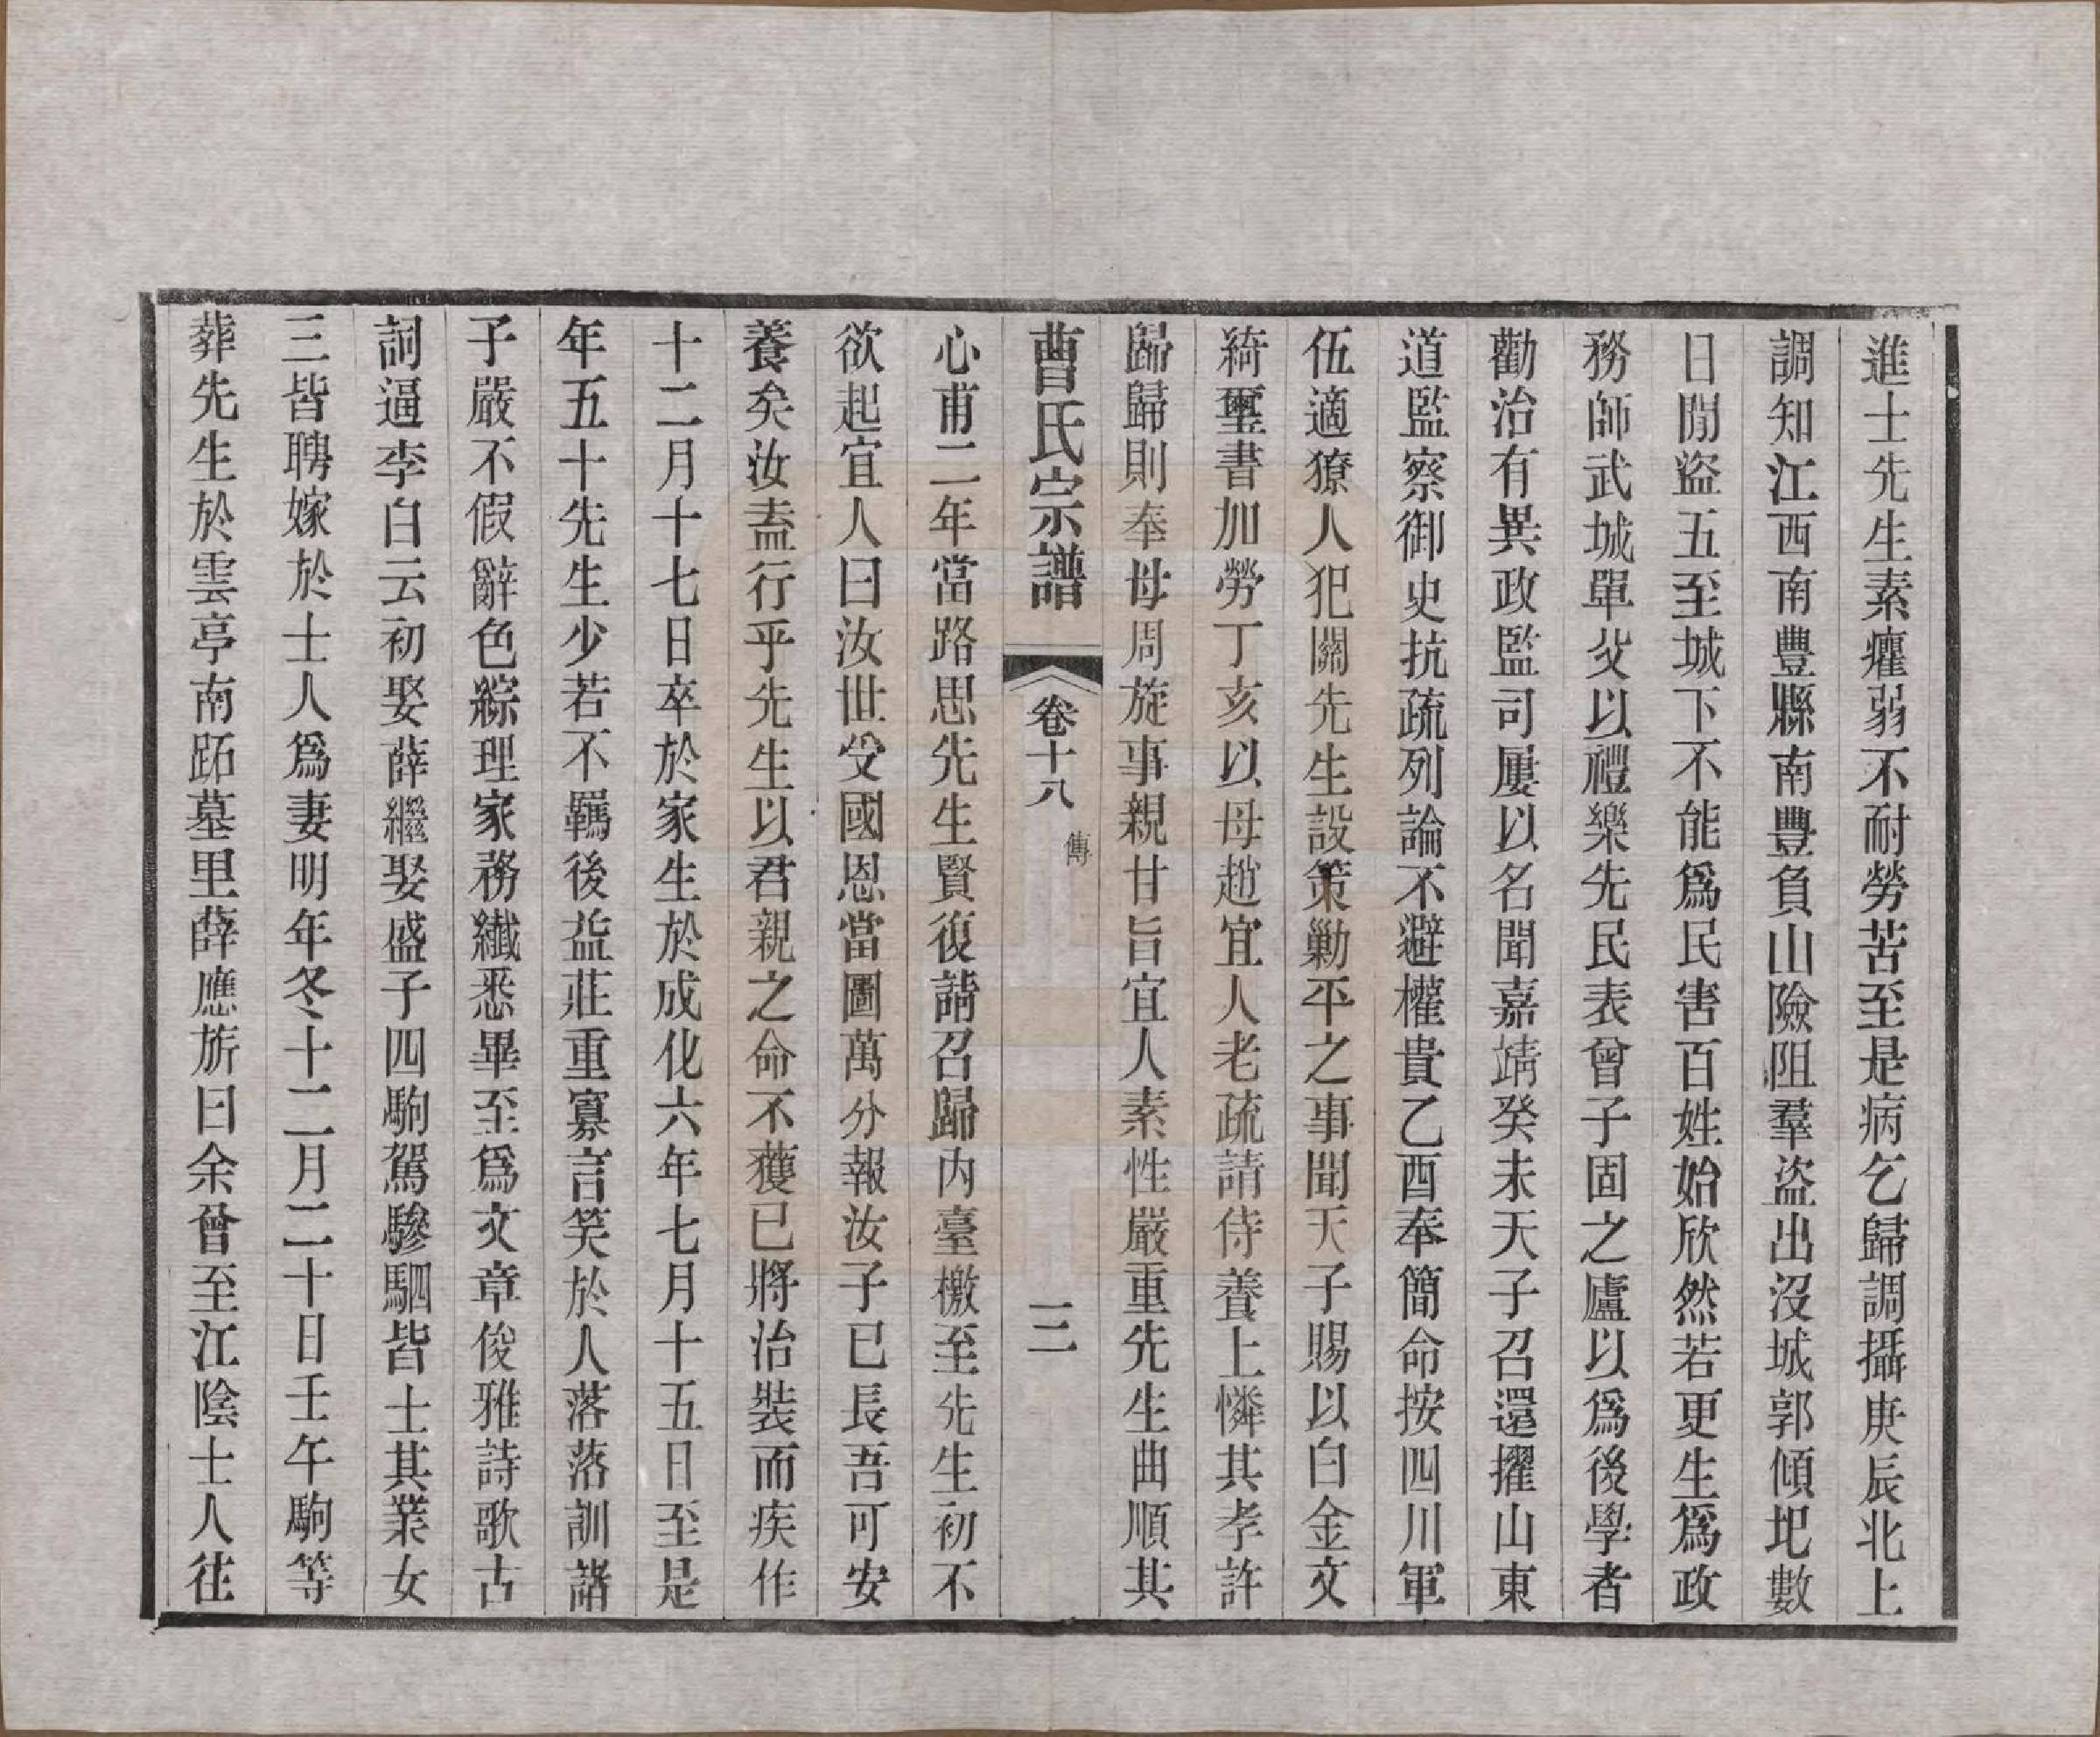 進士先生素癯弱不耐勞苦至是病乞歸調攝庚辰北上
調知江西南豐縣南豐負山險阻羣盜出沒城郭傾圯數
日閒盜五至城下不能爲民害百姓始欣然若更生爲政
務師武城單父以禮樂先民表曾子固之廬以爲後學者
勸治有異政監司屢以名聞嘉靖癸未天子召還擢山東
道監察御史抗疏列論不避權貴乙酉奉簡命按四川軍
伍適獠人犯關先生設策勦平之事聞天子賜以白金文
綺璽書加勞丁亥以母趙宜人老疏請侍養上憐其孝許
歸歸則奉母周旋事親甘旨宜人素性嚴重先生曲順其
曹氏宗譜 卷十八 傳 二
心甫二年當路思先生賢復請召歸内臺檄至先生初不
欲起宜人曰汝世受國恩當圖萬分報汝子已長吾可安
養矣汝盍行乎先生以君親之命不獲已將治裝而疾作
十二月十七日卒於家生於成化六年七月十五日至是
年五十先生少若不羈後益莊重寡言笑於人落落訓諸
子嚴不假辭色綜理家務纖悉畢至爲文章俊雅詩歌古
詞逼李白云初娶薛繼娶盛子四駒駕驂駟皆士其業女
三皆聘嫁於士人爲妻明年冬十二月二十日壬午駒等
葬先生於雲亭南跖墓里薛應旂曰余曾至江陰士人往